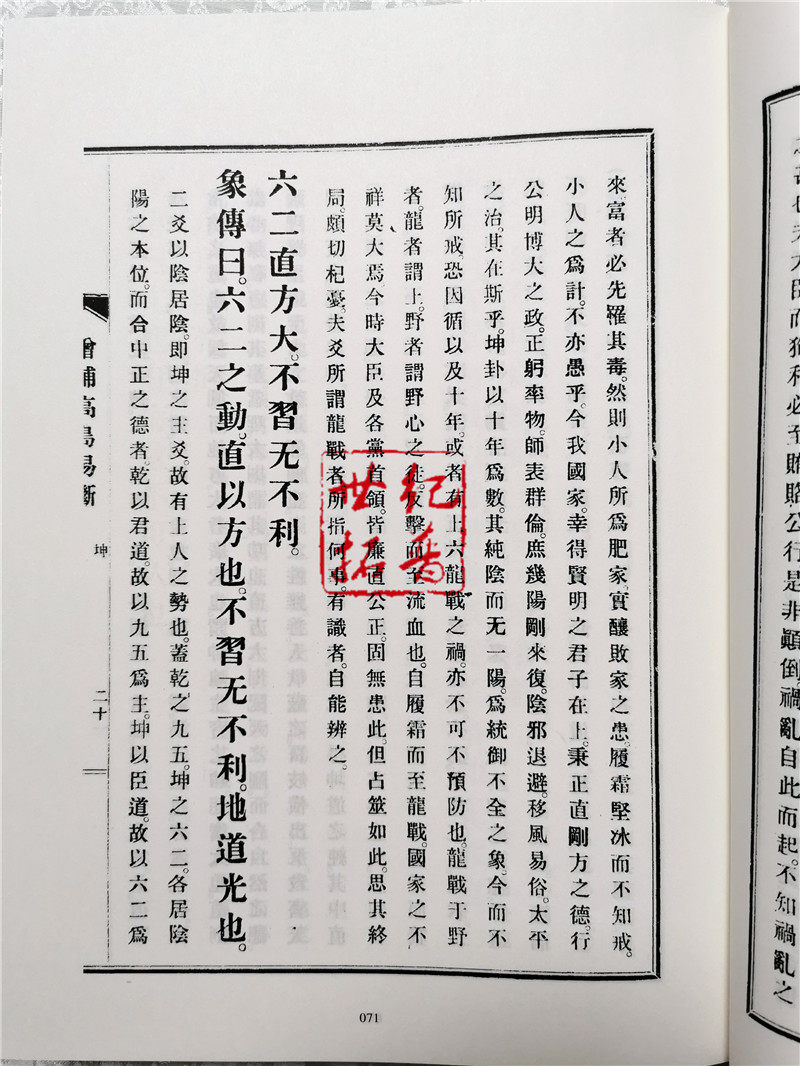 亂自此而起。不知禍亂之
大臣而猶私必至賄賂公行是非顚倒。禍
來富者必先罹其毒。然則小人所爲肥家實釀敗家之患。履霜堅冰而不知戒。
小人之爲計。不亦愚乎。今我國家。幸得賢明之君子在上。秉正直剛方之德。行
公明博大之政。正躬率物。師表群倫。庶幾陽剛來復。陰邪退避。移風易俗。太平
之治。其在斯乎。坤卦以十年爲數。其純陰而无一陽。爲統御不全之象。今而不
知所戒。恐因循以及十年。或者有上六龍戰之禍。亦不可不預防也。龍戰于野
者。龍者謂上。野者謂野心之徒。反擊而至流血也。自履霜而至龍戰。國家之不
祥莫大焉。今時大臣及各黨首領。皆廉直公正。固無患此。但占筮如此。思其終
局。頗切杞憂。夫爻所謂龍戰者。所指何事。有識者。自能辨之。
六二直方大。不習无不利。
象傳曰。六二之動。直以方也。不習无不利。地道光也。
二爻以陰居陰。即坤之主爻。故有上人之勢也。蓋乾之九五。坤之六二。各居陰
陽之本位。而合中正之德者。乾以君道。故以九五爲主。坤以臣道。故以六二爲
增補高島易斷
坤
二十
071
世紀
拓普